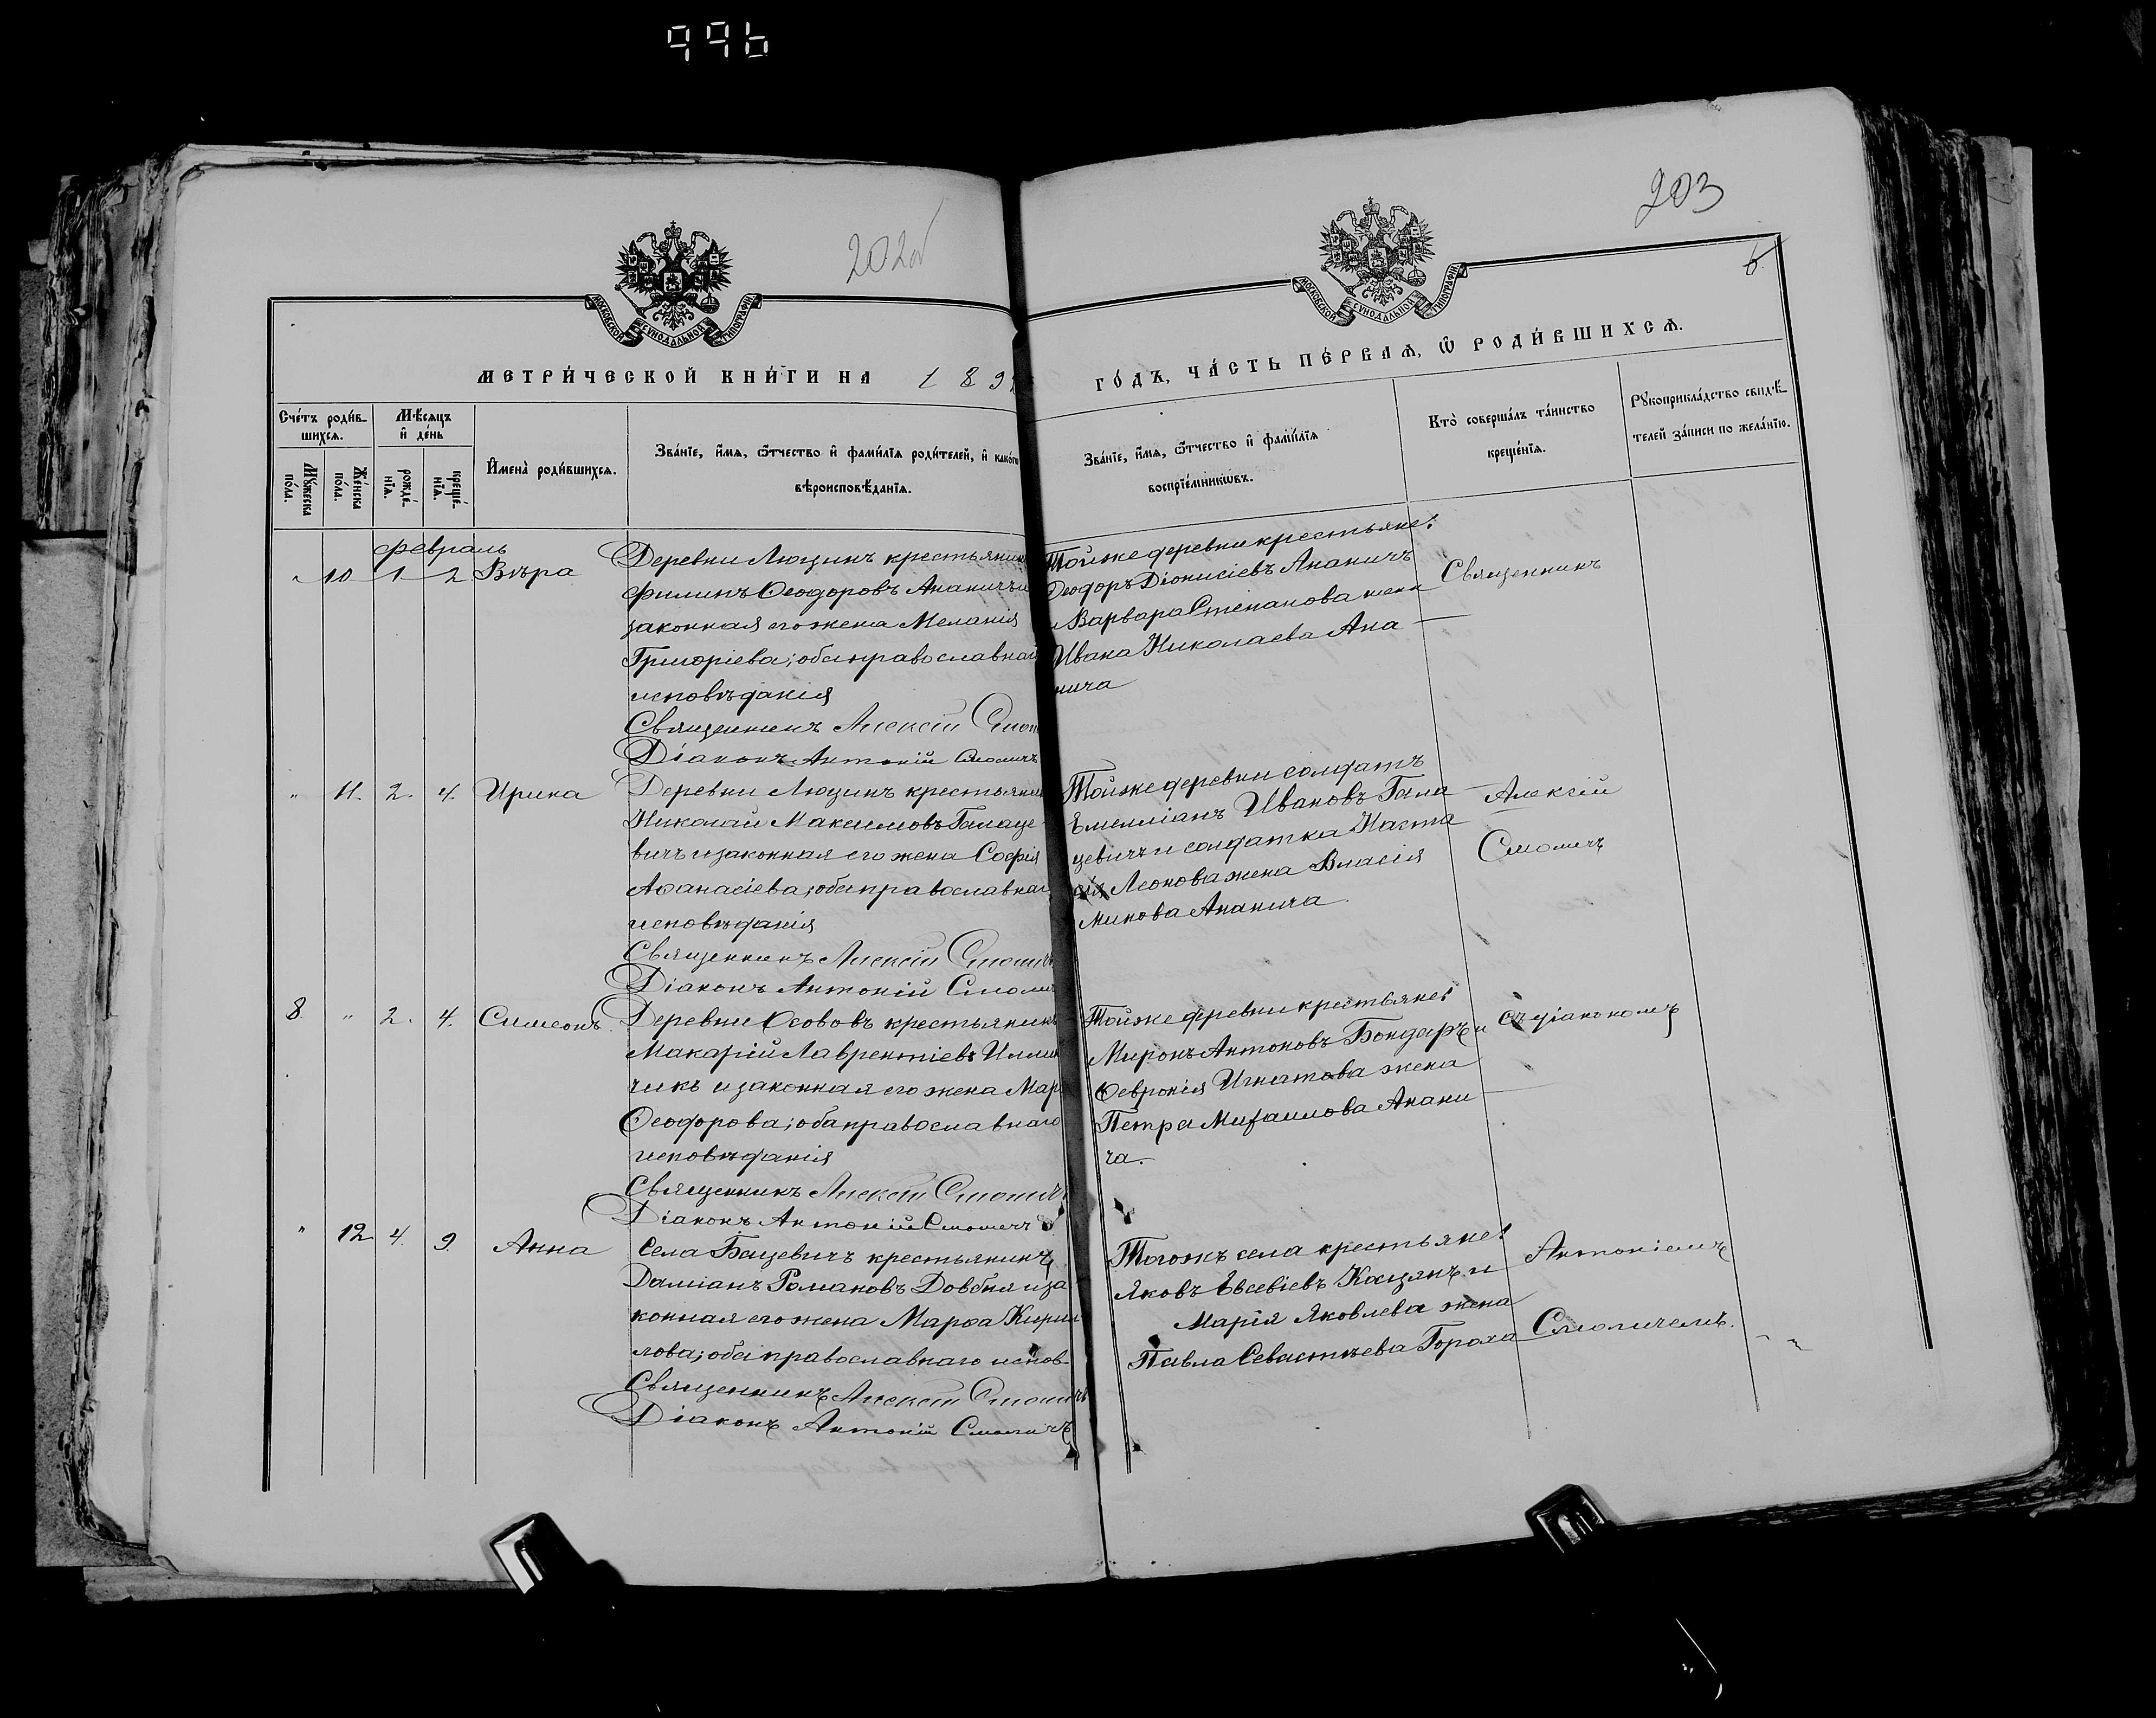 996
202об
203
6.
МОСКОВСКОЙ СѴНОДАЛЬНОЙ ТИПОГРАФІИ
МОСКОВСКОЙ СѴНОДАЛЬНОЙ ТИПОГРАФІИ
МЕТРИ́ЧЕСКОЙ КНИ́ГИ НА 189
ГО́ДЪ, ЧА́СТЬ ПЕ́РВАѦ, Ѽ РОДИ́ВШИХСѦ.
Сче́тъ роди́в-
шихсѧ.
Мꙋ́жеска
по́ла.
Же́нска
по́ла.
Мѣ́сѧцъ
и҆ де́нь
рожде́-
нїѧ.
креще́-
нїѧ.
И҆мена̀ роди́вшихсѧ.
Зва́нїе, и҆́мѧ, ѻ҆́тчество и҆ фами́лїѧ роди́телей, и҆ како́гѡ
вѣроисповѣ́данїѧ.
Зва́нїе, и҆́мѧ, ѻ҆́тчество и҆ фами́лїѧ
воспрїе́мникѡвъ.
Кто̀ соверша́лъ та́инство
креще́нїѧ.
Рꙋкоприкла́дство свидѣ́-
телей за́писи по жела́нїю.
февраль
" 10 1 2 Вѣра
Деревни Люцинъ крестьянинъ
Филипъ Ѳеодоровъ Ананичъ и
законная его жена Меланія
Григоріева; оба православнаго
исповѣданія
Священникъ Алексій Смол
Діаконъ Антоній Смоличъ
Тойже деревни крестьяне:
Ѳеодоръ Діонисіевъ Ананичъ
и Варвара Степанова жена
Ивана Николаева Ана
нича
Священникъ
" 11. 2. 4. Ирина
Деревни Люцинъ крестьянин
Николай Максимовъ Галаце
вичъ и законная его жена Софія
Аѳанасіева; оба православнаго
исповѣданія
Священникъ Алексій Смоличъ
Діаконъ Антоній Смолич
Тойже деревни солдатъ
Емеліанъ Ивановъ Гала
цевичъ и солдатка Наста
сія Леонова жена Власія
Минова Ананича.
Алексій
Смоличъ
8. " 2. 4. Симеонъ.
Деревни Осововъ крестьянинъ
Макарій Лаврентіевъ
чикъ и законная его жена Мар
Ѳеодорова; оба православнаго
исповѣданія
Священникъ Алексій Смоличъ
Діаконъ Антоній Смоличъ
Тойже деревни крестьяне:
Миронъ Антоновъ Бондаръ и
Ѳевронія Игнатова жена
Петра Михаилова Анани
ча.
съ діакономъ
" 12 4. 9. Анна
Села Бацевичъ крестьянинъ
Даміанъ Романовъ Довбня и за
конная его жена Марѳа Кирил
лова; оба православнаго испов.
Священникъ Алексій Смоличъ
Діаконъ Антоній Смоличъ
Тогожъ села крестьяне:
Яковъ Евсевіевъ Кацянъ и
Марія Яковлева жена
Павла Севастьева Гороха
Антоніемъ
Смоличемъ.